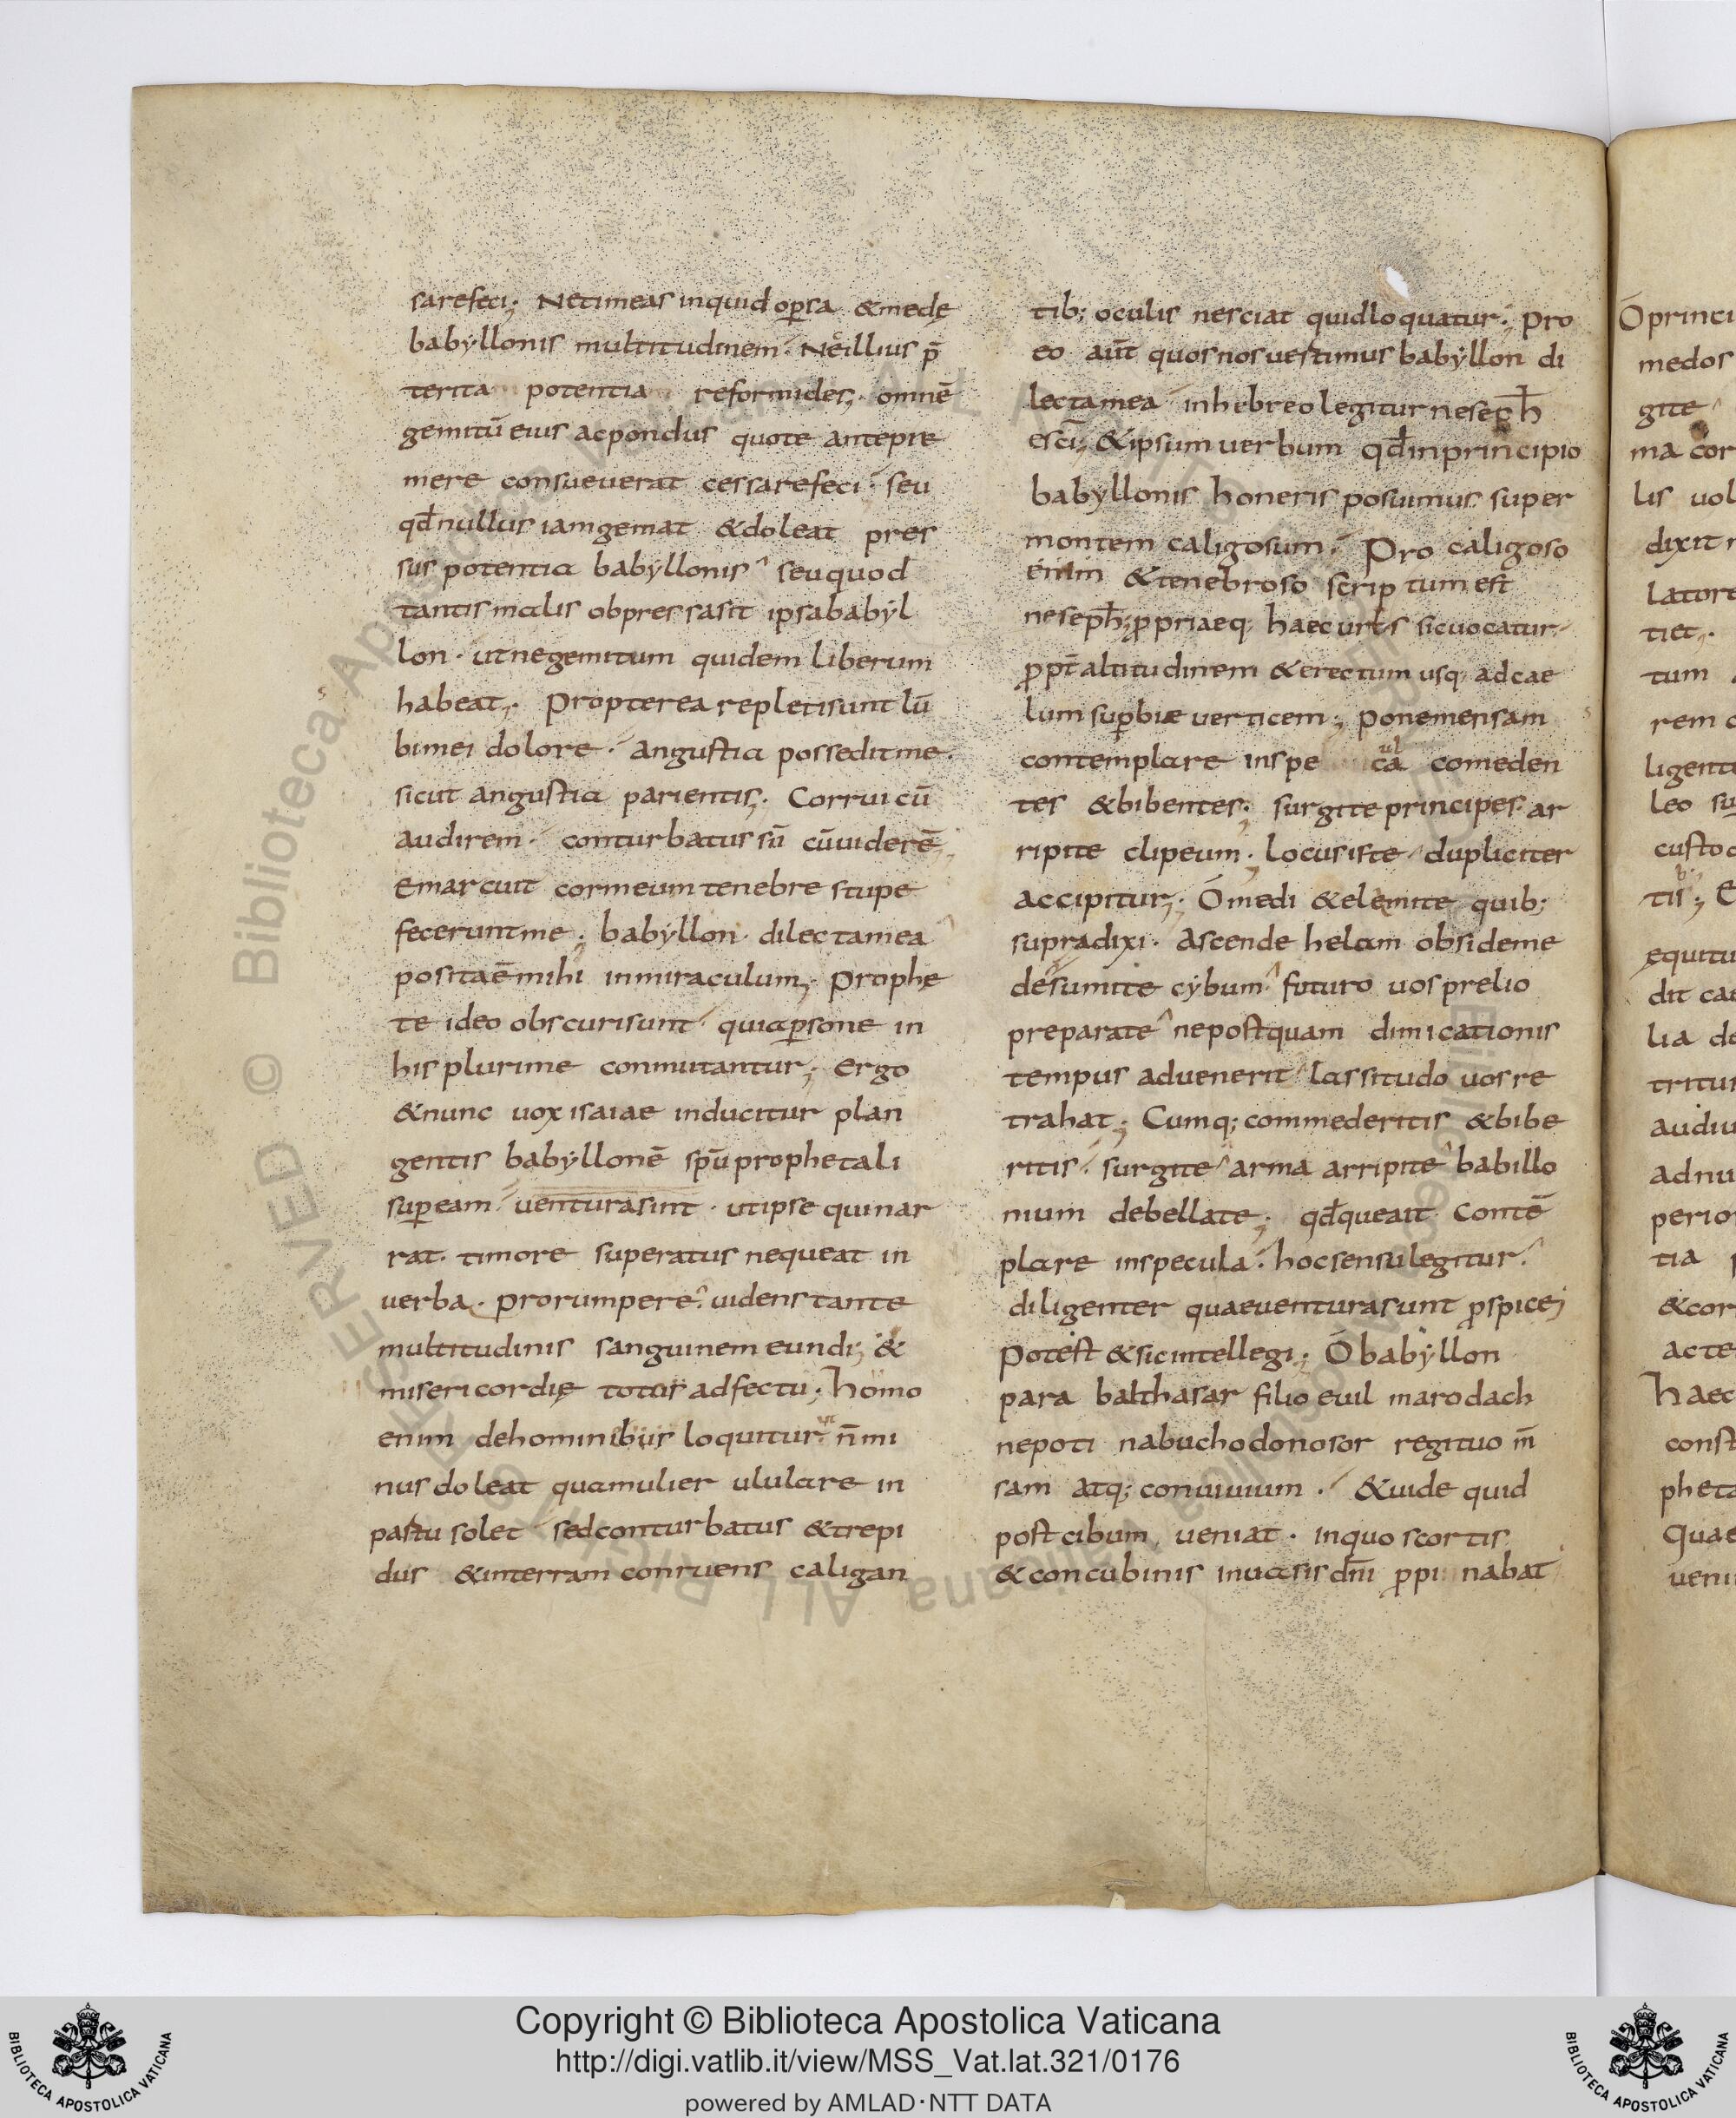 sarefeci; Netimeas inquid oꝑsa &medę
babyllonis multitudinem. Neillius p̄
terita potentia reformides; omnē
gemitū eius acpondus quote antepre
mere consueuerat cessarefeci. seu
qđnullus iamgemat &doleat pres
sus potentia babyllonis seuquod
tantis malis obpressasit ipsababẏl
lon. utnegemitum quidem liberum
habeat; Propterea repletisunt lū
bimei dolore. angustia posseditme.
sicut angustia parientis; Corrui cū
audirem. conturbatus sū cūuiderē;
emarcuit cormeum tenebre stupe
feceruntme; babyllon. dilectamea
positaē mihi inmiraculum; Prophę
te ideo obscurisunt. quiaꝑsone in
his plurime conmutantur; ergo
&nunc uox isaiae inducitur plan
gentis babẏllonē spū prophetali
suꝑeam uenturasint. utipse quinar
rat. timore superatus nequeat in
uerba. prorumpere. uidens tante
multitudinis sanguinem eundi; &
misericordię totus adfectu; homo
enim dehominibus loquitur n̄mi
nus doleat quamulier ululare in
pastu solet sedconturbatus &trepi
dus &interram conruens caligan
tib; oculis nesciat quidloquatur; Pro
eo aūt quosnosuestimus babẏllon di
lectamea inhebreo legitur neseph̄
escī; &ipsum uerbum qđinprincipio
babyllonis honeris posuimus super
montem caligosum; Pro caligoso
enim &tenebroso scriptum est
neseph̄; ꝓpriaeq; haec urbs sicuocatur
ꝓpt̄ altitudinem &erectum usq; adcae
lum suꝑbiae uerticem; ponemensam
contemplare inspe ca
ul
comeden
tes &bibentes; surgite principes. ar
ripite clipeum; Locusiste dupliciter
accipitur; Ó medi &elemite quib;
supradixi. Ascende helam obsideme
desumite cẏbum futuro uos prelio
preparate nepostquam dimicationis
tempus aduenerit lassitudo uos re
trahat; Cumq; commederitis &bibe
ritis. surgite arma arripite babillo
nium debellate; qđqueait contē
plare inspecula. hocsensulegitur.
diligenter quaeuenturasunt ꝓspice;
Potest &sicintellegi; Ó babẏllon
para balthasar filio euil marodach
nepoti nabuchodonosor regituo m̄
sam atq; conuiuium. &uide quid
post cibum ueniat. inquo scortis
&concubinis inuasis dn̄i ꝓpinabat
Ó princi
medos
gite
ma cor
lis uol
dixit
Latore
tiet;
tum
rem
ligent
leo su
custo
tis;
equitu
dit cae
lia de
tritu
audiu
adnu
perio
tia
&cor
acte
haec
const
pheta
quae
ueni
© Biblioteca Apostolica Vaticana ALL RIGHTS RESERVED
Copyright © Biblioteca Apostolica Vaticana
http://digi.vatlib.it/view/MSS_Vat.lat.321/0176
powered by AMLAD·NTT DATA
BIBLIOTECA APOSTOLICA VATICANA
BIBLIOTECA APOSTOLICA VATICANA